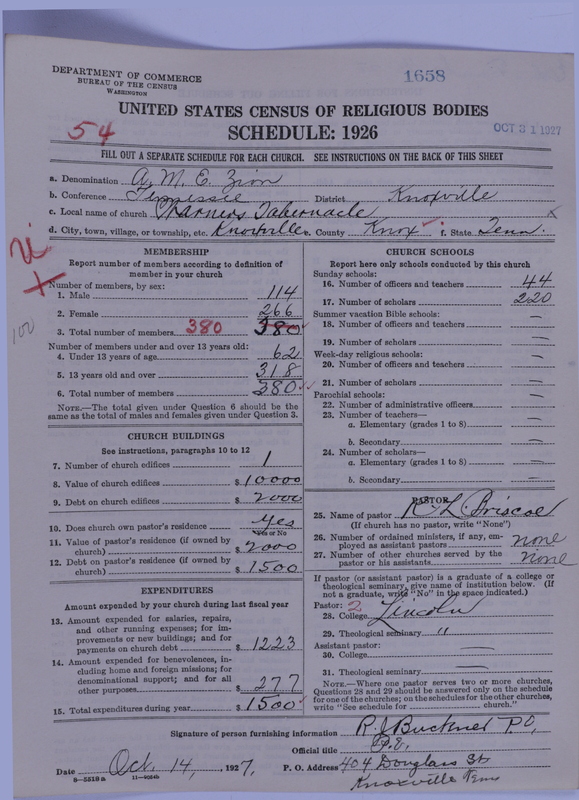 DEPARTMENT OF COMMERCE
BUREAU OF THE CENSUS
WASHINGTON
1658
UNITED STATES CENSUS OF RELIGIOUS BODIES
54
SCHEDULE: 1926
OCT 31 1927
FILL OUT A SEPARATE SCHEDULE FOR EACH CHURCH. SEE INSTRUCTIONS ON THE BACK OF THIS SHEET
a. Denomination A. M. E. Zion
b. Conference Tennessee District Knoxville
c. Local name of church Tabernacle
d. City, town, village, or township, etc. Knoxville e. County Knox f. State Tenn.
MEMBERSHIP
Report number of members according to definition of
member in your church
Number of members, by sex:
1. Male 114
2. Female 266
3. Total number of members 380 380
100
Number of members under and over 13 years old:
4. Under 13 years of age 62
5. 13 years old and over 318
6. Total number of members 380
NOTE.—The total given under Question 6 should be
the same as the total of males and females given under Question 3.
CHURCH BUILDINGS
See instructions, paragraphs 10 to 12
7. Number of church edifices 1
8. Value of church edifices $ 10000
9. Debt on church edifices $ 2000
10. Does church own pastor's residence Yes
Yes or No
11. Value of pastor's residence (if owned by
church) $ 2000
12. Debt on pastor's residence (if owned by
church) $ 1500
EXPENDITURES
Amount expended by your church during last fiscal year
13. Amount expended for salaries, repairs,
and other running expenses; for im-
provements or new buildings; and for
payments on church debt $ 1223
14. Amount expended for benevolences, in-
cluding home and foreign missions; for
denominational support; and for all
other purposes $ 277
15. Total expenditures during year $ 1500
CHURCH SCHOOLS
Report here only schools conducted by this church
Sunday schools:
16. Number of officers and teachers 44
17. Number of scholars 220
Summer vacation Bible schools:
18. Number of officers and teachers —
19. Number of scholars —
Week-day religious schools:
20. Number of officers and teachers —
21. Number of scholars —
Parochial schools:
22. Number of administrative officers —
23. Number of teachers—
a. Elementary (grades 1 to 8) —
b. Secondary —
24. Number of scholars—
a. Elementary (grades 1 to 8) —
b. Secondary —
PASTOR
25. Name of pastor R. L. Briscoe
(If church has no pastor, write "None")
26. Number of ordained ministers, if any, em-
ployed as assistant pastors none
27. Number of other churches served by the
pastor or his assistants none
If pastor (or assistant pastor) is a graduate of a college or
theological seminary, give name of institution below. (If
not a graduate, write "No" in the space indicated.)
Pastor: 2
28. College Lincoln
29. Theological seminary "
Assistant pastor:
30. College —
31. Theological seminary —
NOTE.—Where one pastor serves two or more churches,
Questions 28 and 29 should be answered only on the schedule
for one of the churches; on the schedules for the other churches,
write "See schedule for church."
Signature of person furnishing information R. J. Buckner P. E.
Official title P. E.
Date Oct. 14, 1927. P. O. Address 404 Douglass St
8—5518 a 11—9054b Knoxville Tenn